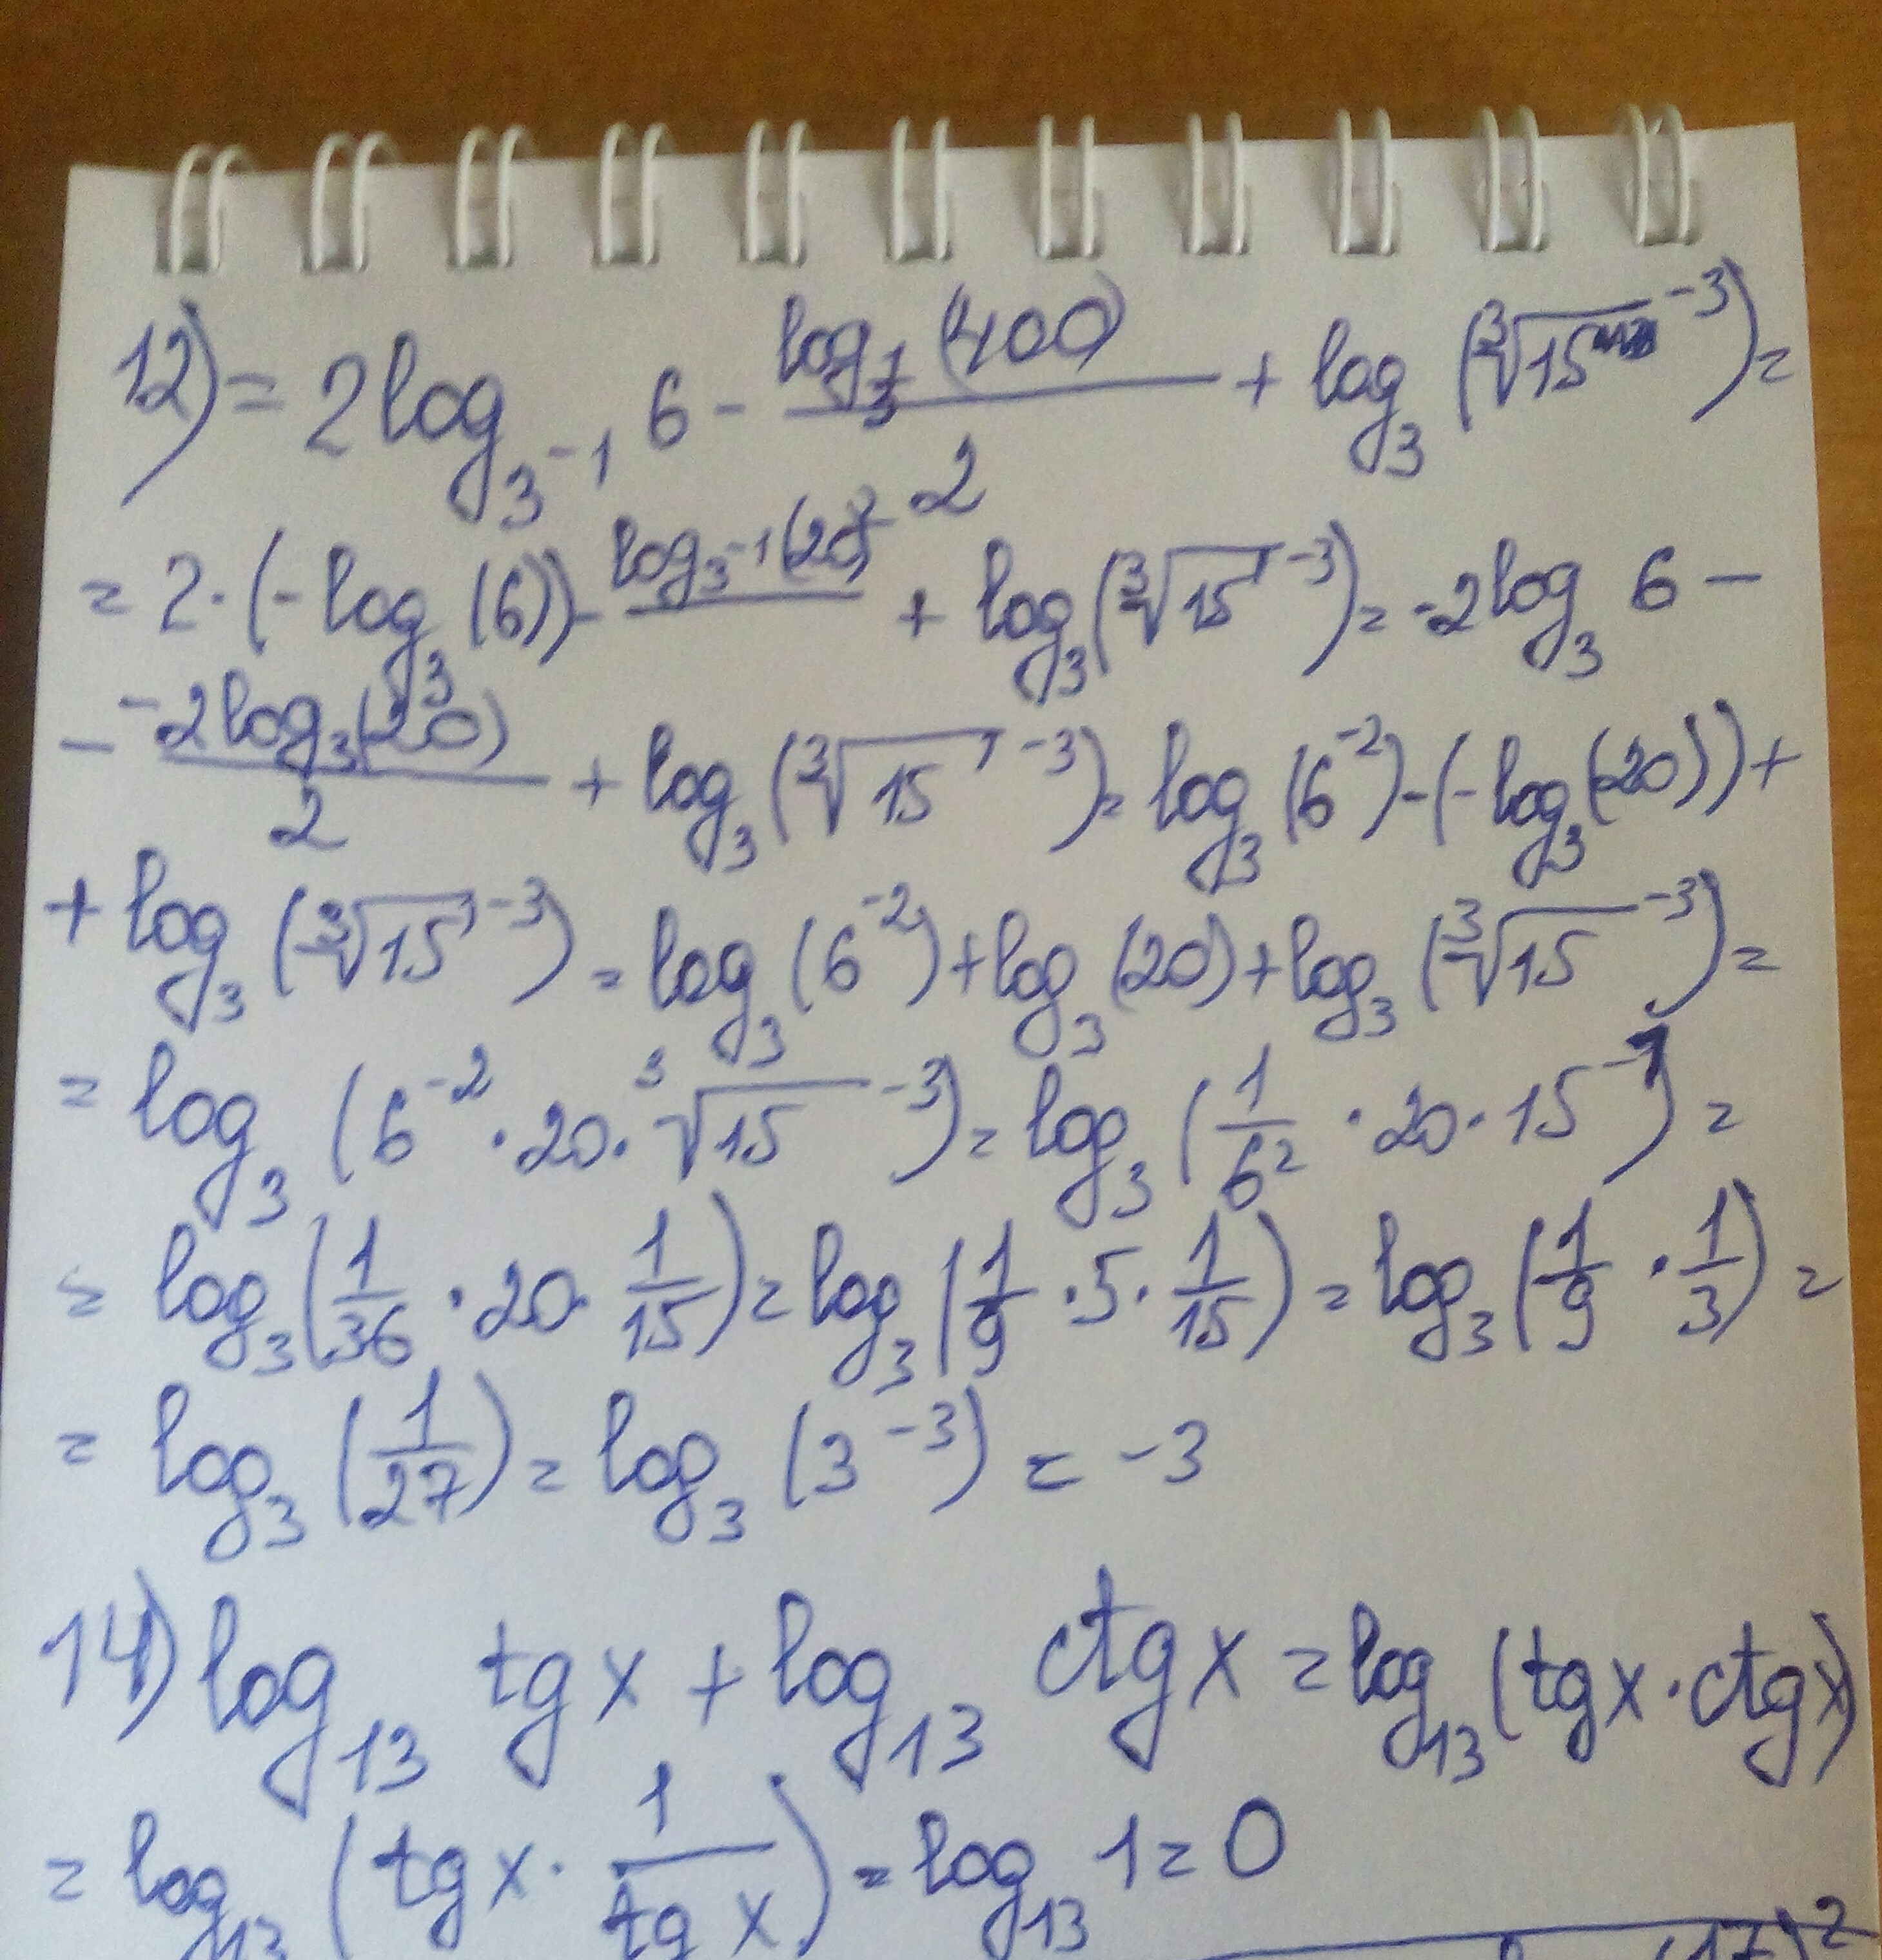 12) = 2log_{3^{-1}} 6 - \frac{log_{\frac{1}{3}} (400)}{2} + log_3 (\sqrt[3]{15}^{-3}) =
= 2·(-log_3 (6)) - \frac{log_{3^{-1}} (20)^2}{2} + log_3 (\sqrt[3]{15}^{-3}) = -2log_3 6 -
- \frac{-2log_3 (20)}{2} + log_3 (\sqrt[3]{15}^{-3}) = log_3 (6^{-2}) - (-log_3 (20)) +
+ log_3 (\sqrt[3]{15}^{-3}) = log_3 (6^{-2}) + log_3 (20) + log_3 (\sqrt[3]{15}^{-3}) =
= log_3 (6^{-2} · 20 · \sqrt[3]{15}^{-3}) = log_3 (\frac{1}{6^2} · 20 · 15^{-1}) =
= log_3 (\frac{1}{36} · 20 · \frac{1}{15}) = log_3 (\frac{1}{9} · 5 · \frac{1}{15}) = log_3 (\frac{1}{9} · \frac{1}{3}) =
= log_3 (\frac{1}{27}) = log_3 (3^{-3}) = -3
14) log_{13} tg x + log_{13} ctg x = log_{13} (tg x · ctg x)
= log_{13} (tg x · \frac{1}{tg x}) = log_{13} 1 = 0